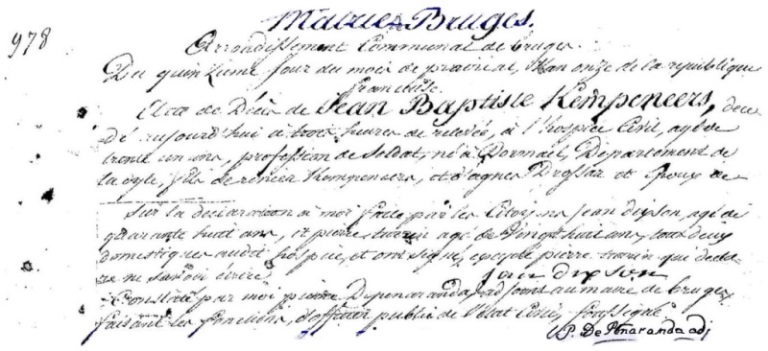 978
Mairie Bruges.
Arrondissement Communal de bruges.
Du quinzieme jour du mois de prairial, l'an onze de la republique
francaise.
Acte de Décès de Jean Baptiste Kempeneers, dece
dé aujourd'hui a trois heures de relevée, à l'hospice Civil, agé de
trente un ans, profession de Soldat, né à Dormael, Departement de
la dyle, fils de Kempeneers, et d'agnes et Epoux de
Sur la declaration à moi faite par les Citoyens Jean dipson, agé de
quarante huit ans, et pierre agé de Vingt huit ans, tous deux
domestiques audit hospice, et ont signé, excepté pierre que decla-
re ne savoir écrire
jan dipson
Constaté par moi Depenaranda adjoint au maire de bruges
faisant les fonctions d'officier public de l'état Civil, soussigné
P. De Pénaranda adj